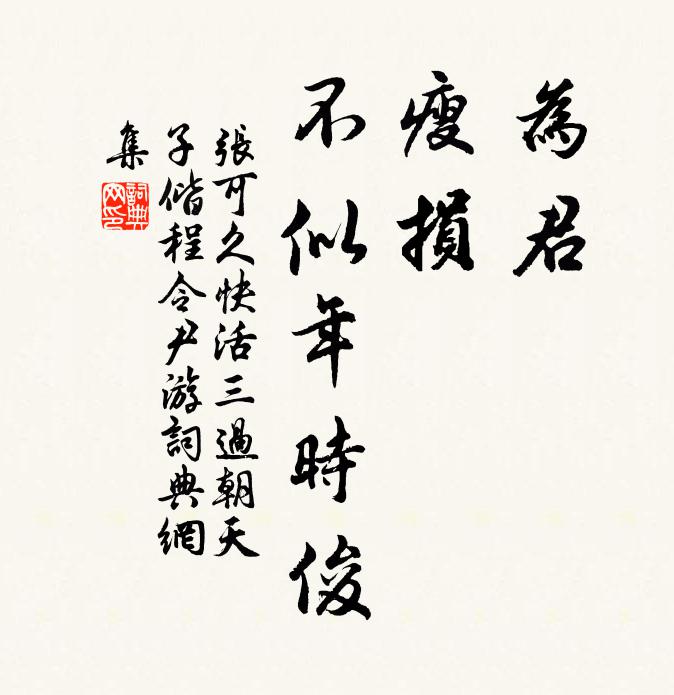 為君
瘦損
不似年時俊
張可久快活三過朝天
子偕程令尹游詞典網
集
詞典
网印